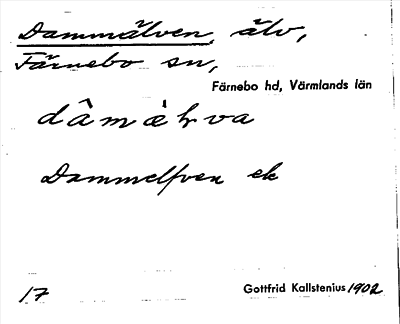 Dammälven, älv,
Färnebo sn,
Färnebo hd, Värmlands län
dâmèlva
Dammelfven ek
17
Gottfrid Kallstenius 1902